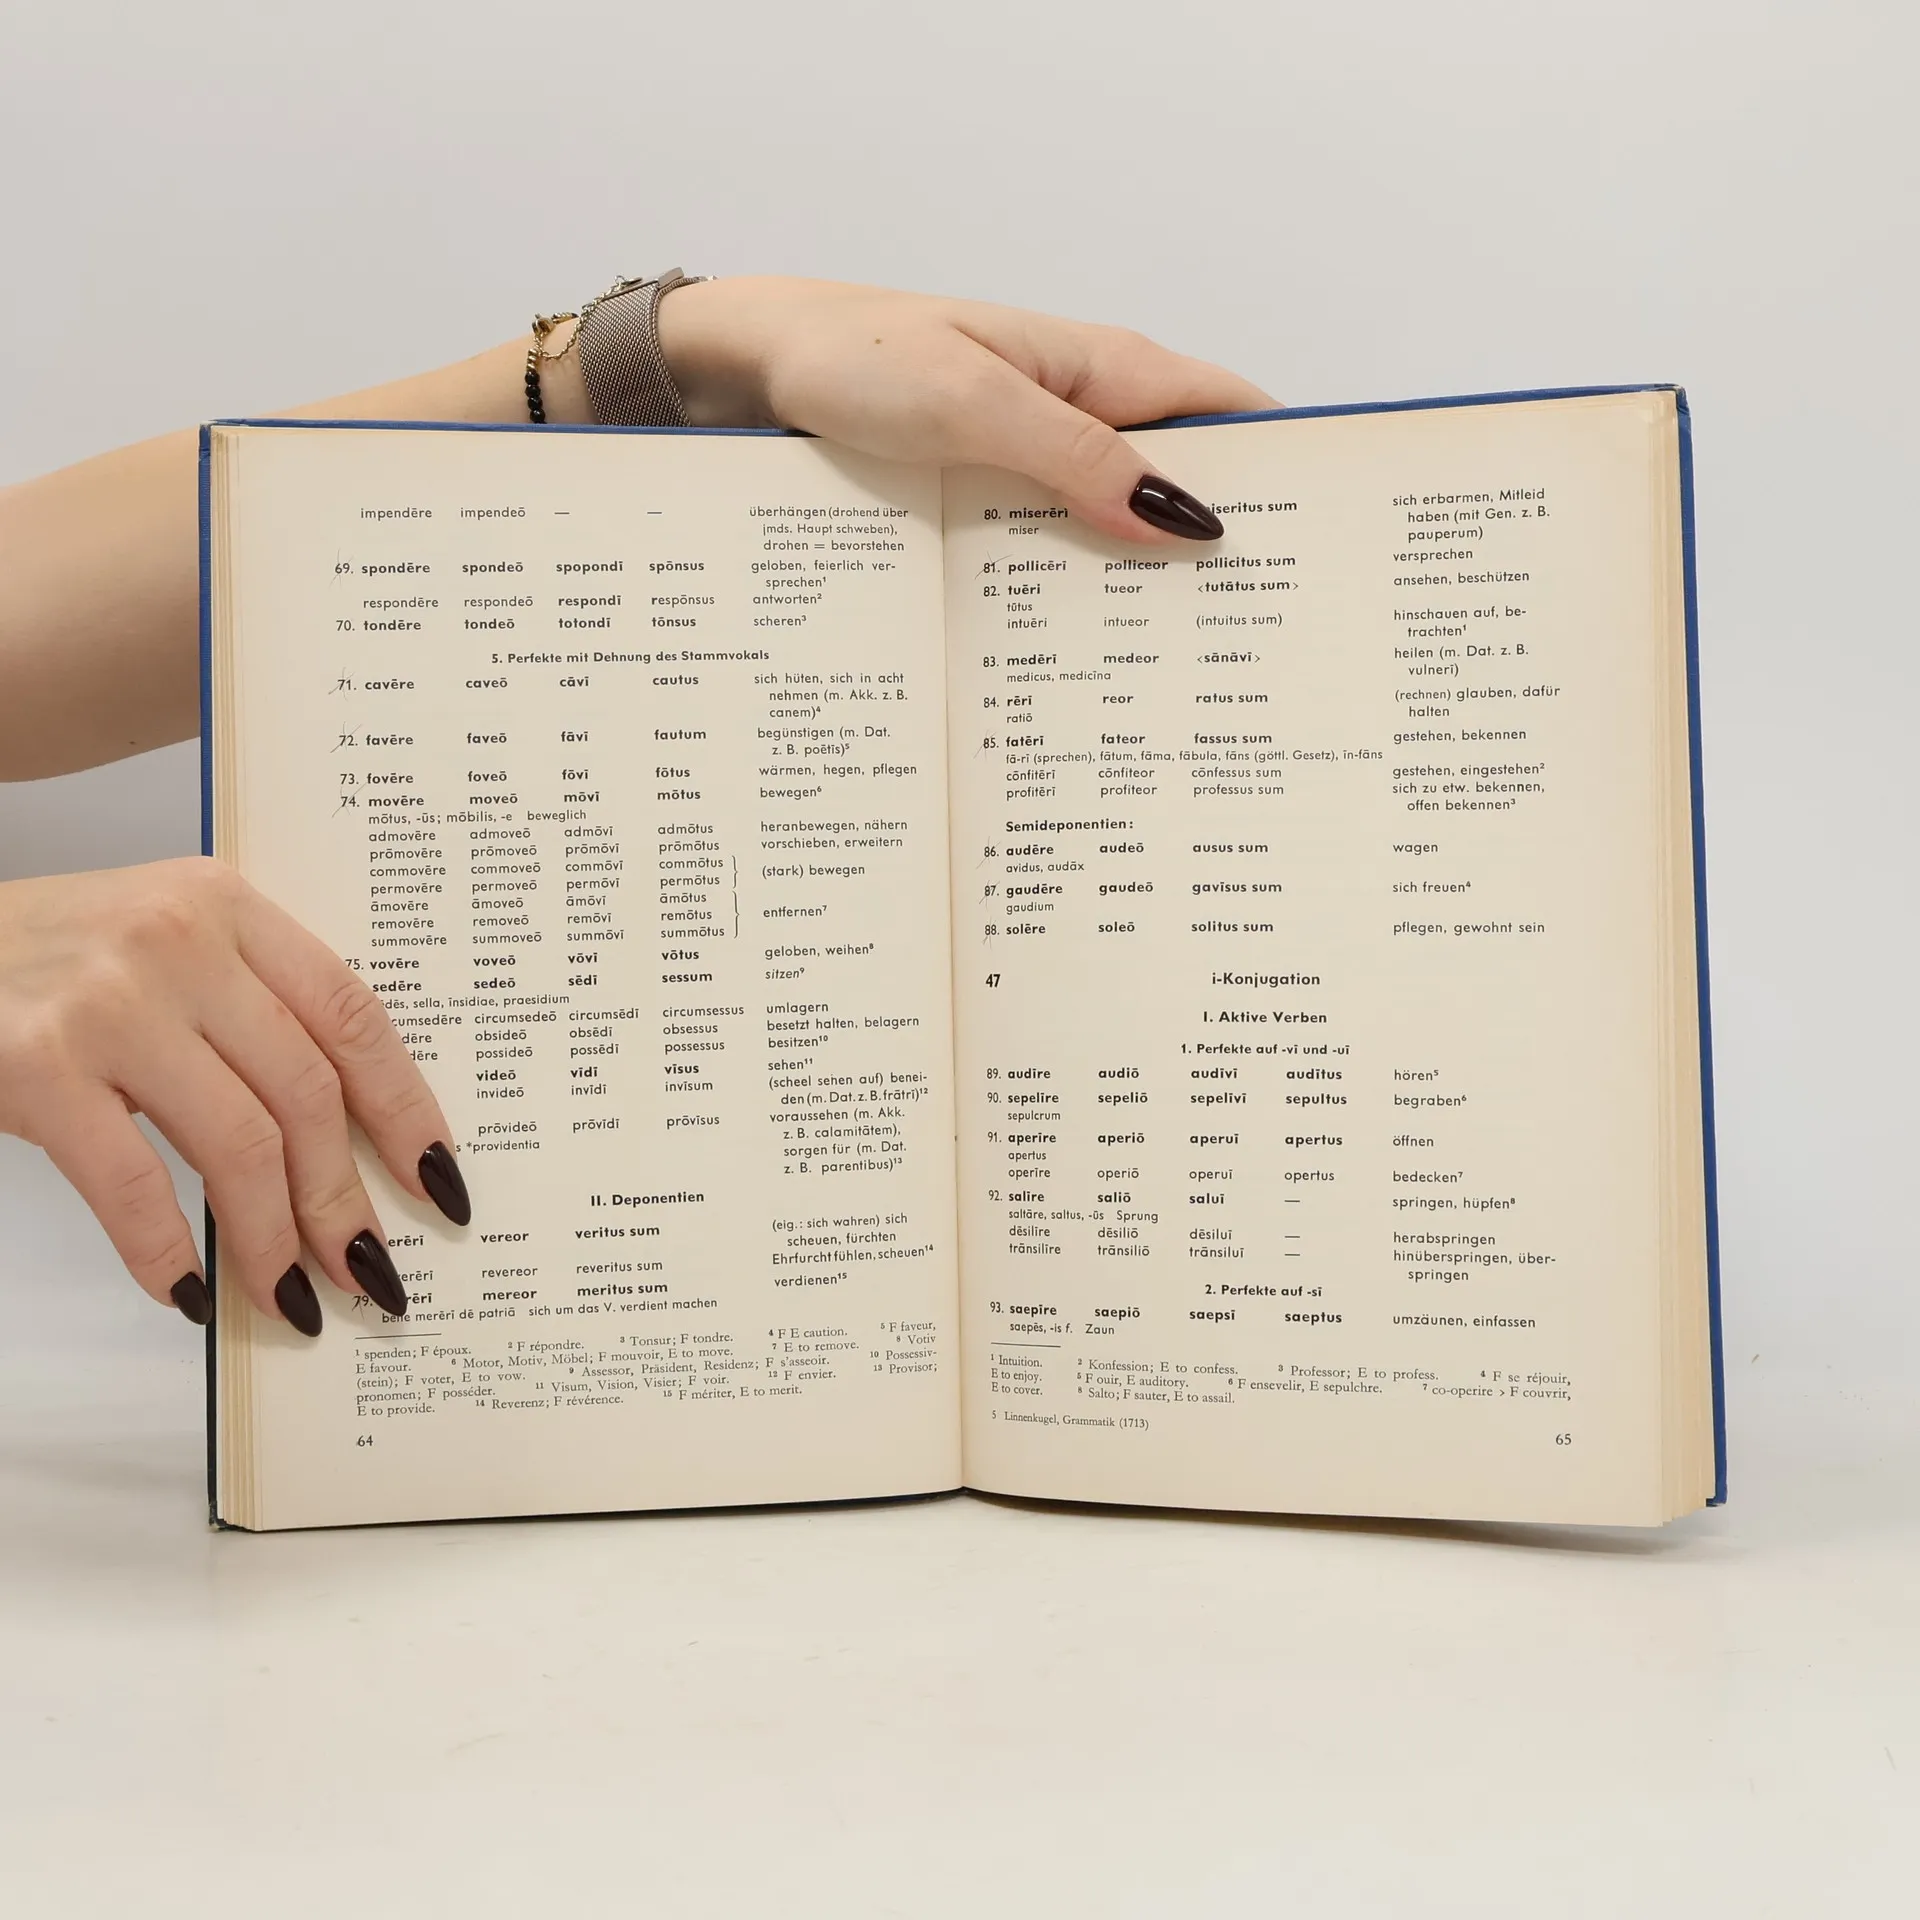 impendēre impendeō — — überhängen (drohend über
jmds. Haupt schweben),
drohen = bevorstehen
69. spondēre spondeō spopondī spōnsus geloben, feierlich ver-
sprechen¹
respondēre respondeō respondī respōnsus antworten²
70. tondēre tondeō totondī tōnsus scheren³
5. Perfekte mit Dehnung des Stammvokals
71. cavēre caveō cāvī cautus sich hüten, sich in acht
nehmen (m. Akk. z. B.
canem)⁴
72. favēre faveō fāvī fautum begünstigen (m. Dat.
z. B. poētīs)⁵
73. fovēre foveō fōvī fōtus wärmen, hegen, pflegen
74. movēre moveō mōvī mōtus bewegen⁶
mōtus, -ūs; mōbilis, -e beweglich
admovēre admoveō admōvī admōtus heranbewegen, nähern
prōmovēre prōmoveō prōmōvī prōmōtus vorschieben, erweitern
commovēre commoveō commōvī commōtus
permovēre permoveō permōvī permōtus (stark) bewegen
āmovēre āmoveō āmōvī āmōtus
removēre removeō remōvī remōtus entfernen⁷
summovēre summoveō summōvī summōtus
75. vovēre voveō vōvī vōtus geloben, weihen⁸
sedēre sedeō sēdī sessum sitzen⁹
sella, īnsidiae, praesidium
circumsedeō circumsēdī circumsessus umlagern
obsideō obsēdī obsessus besetzt halten, belagern
possideō possēdī possessus besitzen¹⁰
videō vīdī vīsus sehen¹¹
invideō invīdī invīsum (scheel sehen auf) benei-
den (m. Dat. z. B. frātrī)¹²
prōvideō prōvīdī prōvīsus voraussehen (m. Akk.
z. B. calamitātem),
*providentia sorgen für (m. Dat.
z. B. parentibus)¹³
II. Deponentien
vereor veritus sum (eig.: sich wahren) sich
scheuen, fürchten
revereor reveritus sum Ehrfurcht fühlen, scheuen¹⁴
79. mereor meritus sum verdienen¹⁵
bene merērī dē patriā sich um das V. verdient machen
¹ spenden; F époux. ² F répondre. ³ Tonsur; F tondre. ⁴ F E caution. ⁵ F faveur,
E favour. ⁶ Motor, Motiv, Möbel; F mouvoir, E to move. ⁷ E to remove. ⁸ Votiv
(stein); F voter, E to vow. ⁹ Assessor, Präsident, Residenz; F s'asseoir. ¹⁰ Possessiv-
pronomen; F posséder. ¹¹ Visum, Vision, Visier; F voir. ¹² F envier. ¹³ Provisor;
E to provide. ¹⁴ Reverenz; F révérence. ¹⁵ F mériter, E to merit.
64
80. miserērī sich erbarmen, Mitleid
miser haben (mit Gen. z. B.
pauperum)
81. pollicērī polliceor pollicitus sum versprechen
82. tuērī tueor <tutātus sum> ansehen, beschützen
tūtus
intuērī intueor (intuitus sum) hinschauen auf, be-
trachten¹
83. medērī medeor <sānāvī> heilen (m. Dat. z. B.
medicus, medicīna vulnerī)
84. rērī reor ratus sum (rechnen) glauben, dafür
ratiō halten
85. fatērī fateor fassus sum gestehen, bekennen
fā-rī (sprechen), fātum, fāma, fābula, fāns (göttl. Gesetz), īn-fāns
cōnfitērī cōnfiteor cōnfessus sum gestehen, eingestehen²
profitērī profiteor professus sum sich zu etw. bekennen,
offen bekennen³
Semideponentien:
86. audēre audeō ausus sum wagen
avidus, audāx
87. gaudēre gaudeō gavīsus sum sich freuen⁴
gaudium
88. solēre soleō solitus sum pflegen, gewohnt sein
47 i-Konjugation
I. Aktive Verben
1. Perfekte auf -vī und -uī
89. audīre audiō audīvī audītus hören⁵
90. sepelīre sepeliō sepelīvī sepultus begraben⁶
sepulcrum
91. aperīre aperiō aperuī apertus öffnen
apertus
operīre operiō operuī opertus bedecken⁷
92. salīre saliō saluī — springen, hüpfen⁸
saltāre, saltus, -ūs Sprung
dēsilīre dēsiliō dēsiluī — herabspringen
trānsilīre trānsiliō trānsiluī — hinüberspringen, über-
springen
2. Perfekte auf -sī
93. saepīre saepiō saepsī saeptus umzäunen, einfassen
saepēs, -is f. Zaun
¹ Intuition. ² Konfession; E to confess. ³ Professor; E to profess. ⁴ F se réjouir,
E to enjoy. ⁵ F ouir, E auditory. ⁶ F ensevelir, E sepulchre. ⁷ co-operire > F couvrir,
E to cover. ⁸ Salto; F sauter, E to assail.
5 Linnenkugel, Grammatik (1713)
65